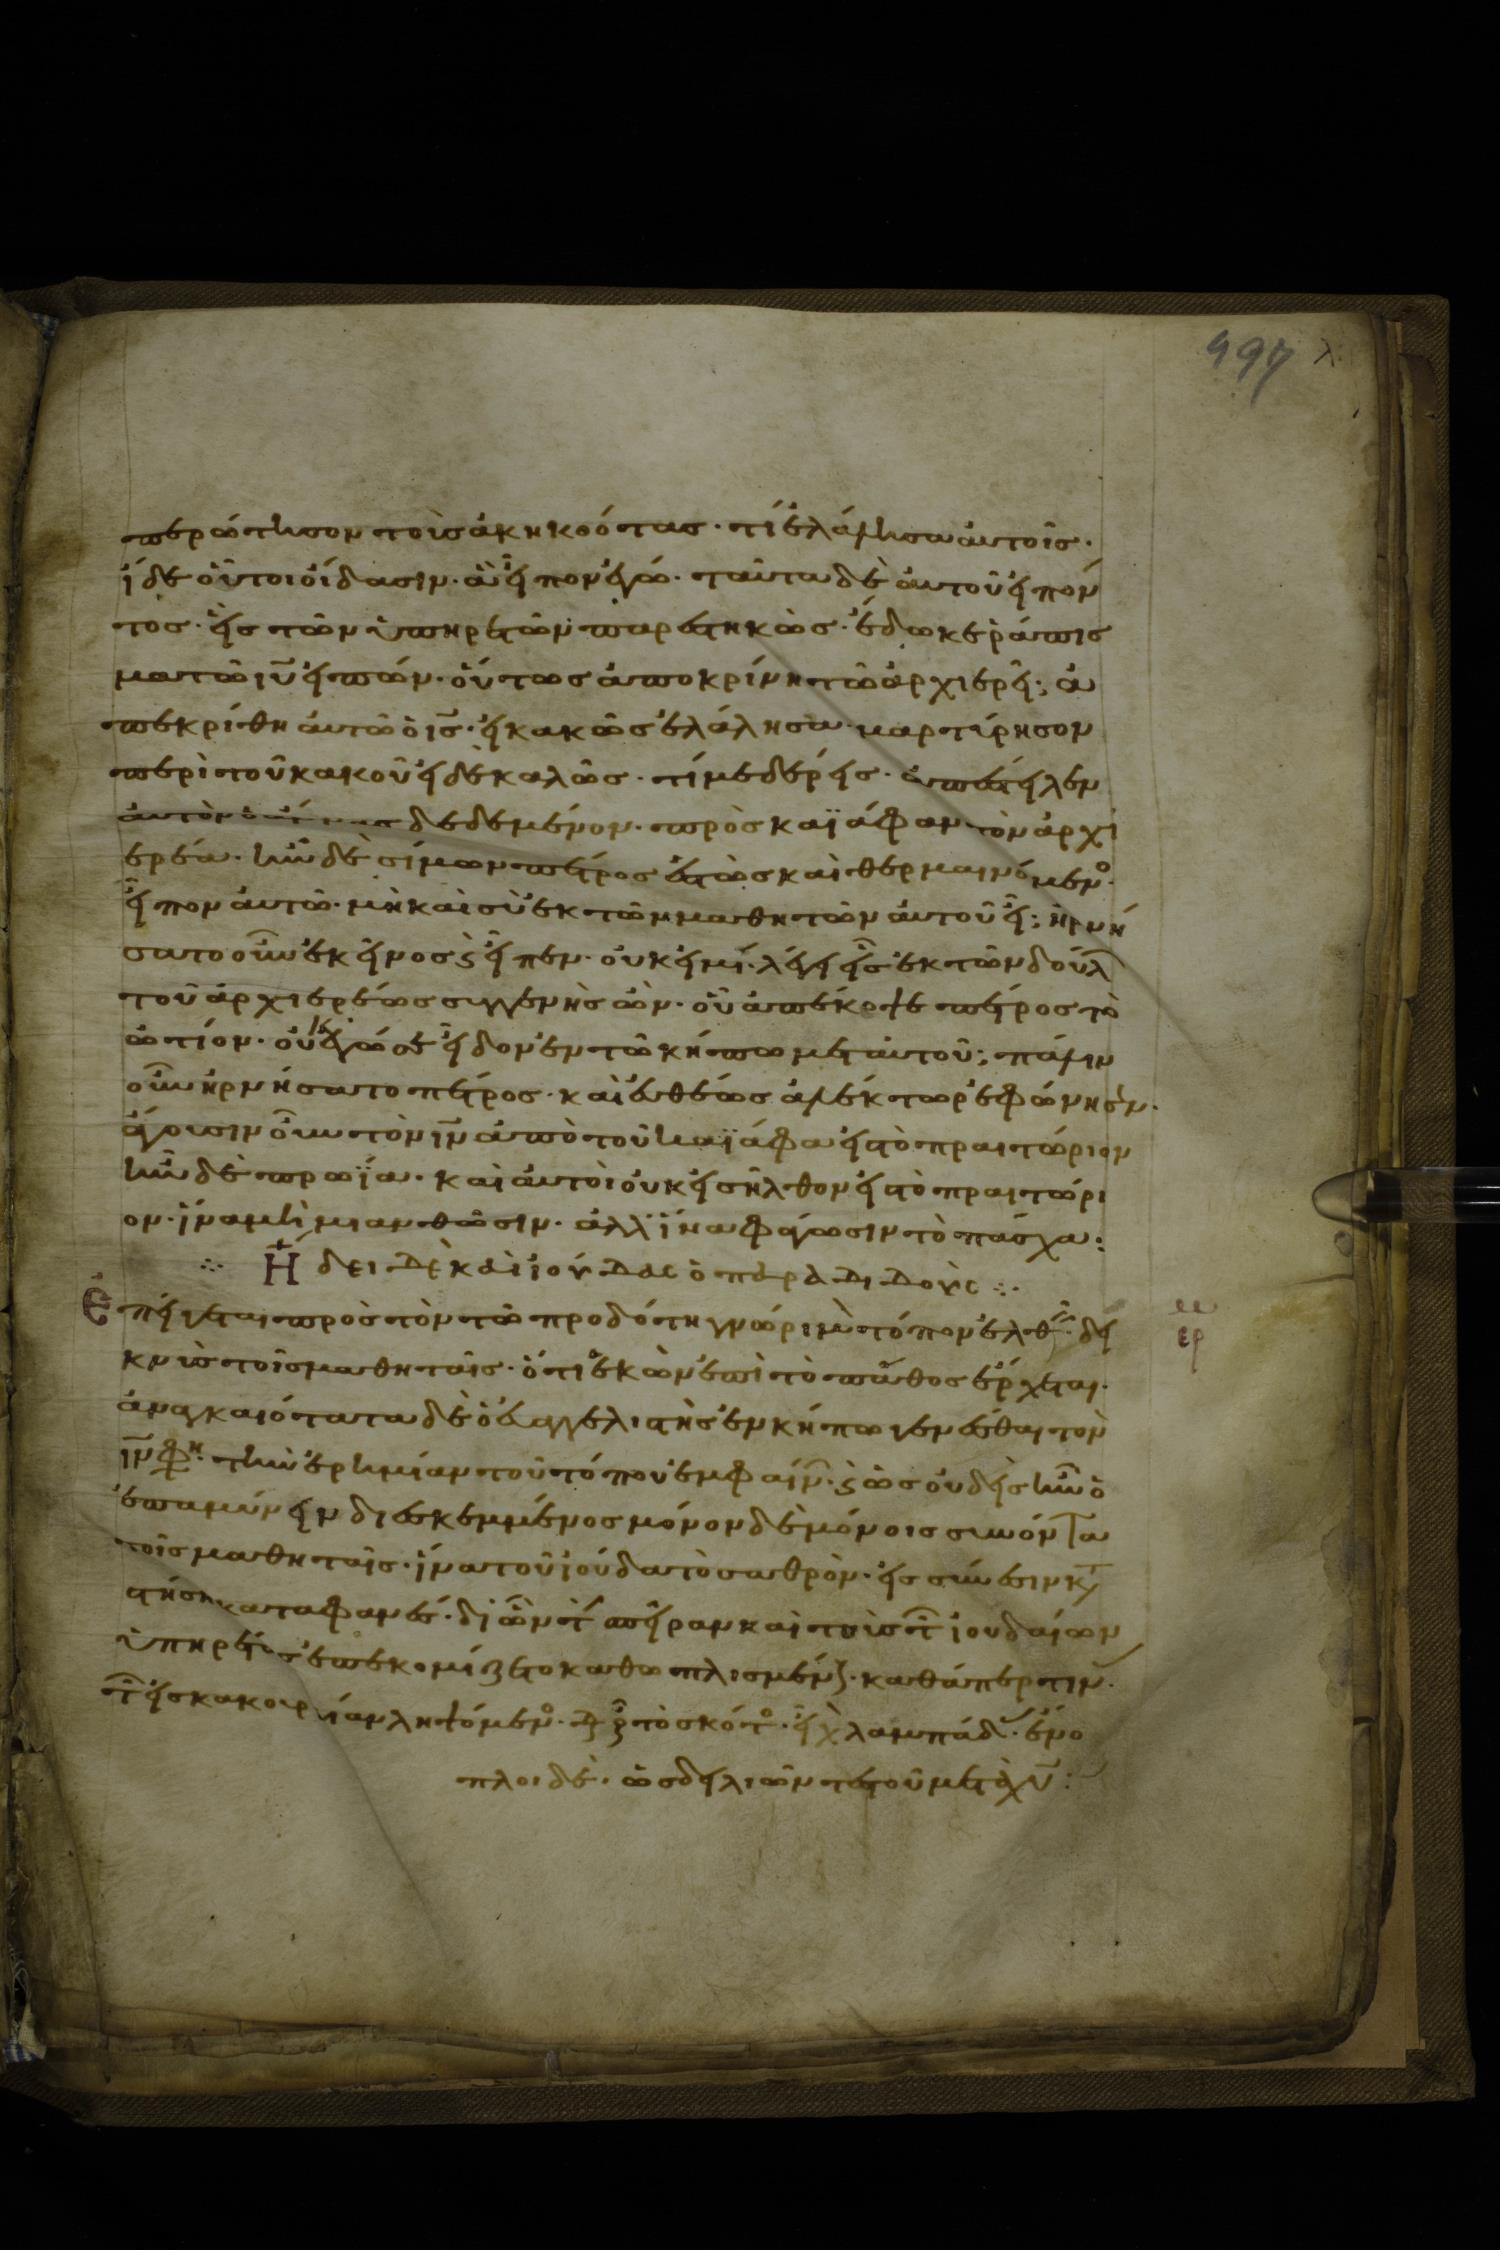 497 λ
περώτησον τοὺς ἀκηκοότας· τί ἐλάλησα ἀυτοῖς·
ἴδε οὗτοι ὀίδασιν· ἃ εἶπον ἐγώ· ταῦτα δὲ ἀυτοῦ εἰπόν
τος· εἷς τῶν ὑπηρετῶν παρεστηκὼς· ἔδωκε ῥάπισ
μα τῶ ιυ εἰπών· ὅυτως ἀποκρίνη τῶ ἀρχιερεῖ; ἀ
πεκρίθη ἀυτῶ ὁ ις· εἰ κακῶς ἐλάλησα· μαρτύρησον
περὶ τοῦ κακοῦ εἰ δὲ καλῶς· τί με δέρεις· ἀπέστειλεν
ἀυτὸν ὁ δεδεμένον· πρὸς καϊάφαν τὸν ἀρχι
ερέα· ἦν δὲ σίμων πέτρος ἑστὼς καὶ θερμαινόμενο·
εἶπον ἀυτῶ· μὴ καὶ σὺ ἐκ τῶν μαθητῶν ἀυτοῦ εἶ; ἠρνή
σατο οὖν ἐκεῖνος ϛ εἶπεν· ουκ εἰμί· λέγει εἷς ἐκ τῶν δούλ
τοῦ ἀρχιερέως συγγενὴς ὢν· οὗ ἀπέκοψε πέτρος τὸ
ὠτίον· οὐκ ἐγώ σε εἶδον ἐν τῶ κήπω μετ ἀυτοῦ; πάλιν
οὖν ἠρνήσατο πέτρος· καὶ ἐυθέως ἀλέκτωρ ἐφώνησεν·
ἄγουσιν οὖν τὸν ιν ἀπὸ τοῦ καϊάφα εἰς τὸ πραιτώριον
ἦν δὲ πρωΐα· καὶ ἀυτοὶ ὀυκ εἰσῆλθον εἰς τὸ πραιτώρι
ον· ἵνα μὴ μιανθῶσιν· ἀλλ ἵνα φάγωσιν τὸ πάσχα:
∴ Ἤδει δὲ καὶ ἰούδας ὁ παραδιδοὺς ∴
Ἐπείγεται πρὸς τὸν τῶ προδότη γνώριμον τόπον ἐλθεῖ· δει
κνὺς τοῖς μαθηταῖς· ὅτι ἑκὼν ἐπὶ τὸ πάθος ἔρχεται·
ερ
ἀναγκαιότατα δὲ ὁ ἐυαγγελιστὴς ἐν κήπω γενέσθαι τὸν
ιν φη· τὴν ἐρημίαν τοῦ τόπου ἐμφαίν· ϛ ὡς ὀυδεὶς ἦν ὁ
ἐπαμύνειν διεσκεμμένος μόνον δὲ μόνοις συνόντα
τοῖς μαθηταῖς· ἵνα τοῦ ἰούδα τὸ σαθρὸν· εἰς σύνεσιν κ
στήση καταφανές· δι ὧν τ σπεῖραν καὶ τοὺς τ ἰουδαίων
ὑπηρέτας ἐπεκομίζετο καθωπλισμέν· καθάπερ τιν
τ εἰς κακουργίαν ληψόμενο· τὸ σκότο· εἶχ λαμπάδ· ἔνο
πλοι δὲ· ὡς δειλιῶντες τοῦ μετὰ χυ: